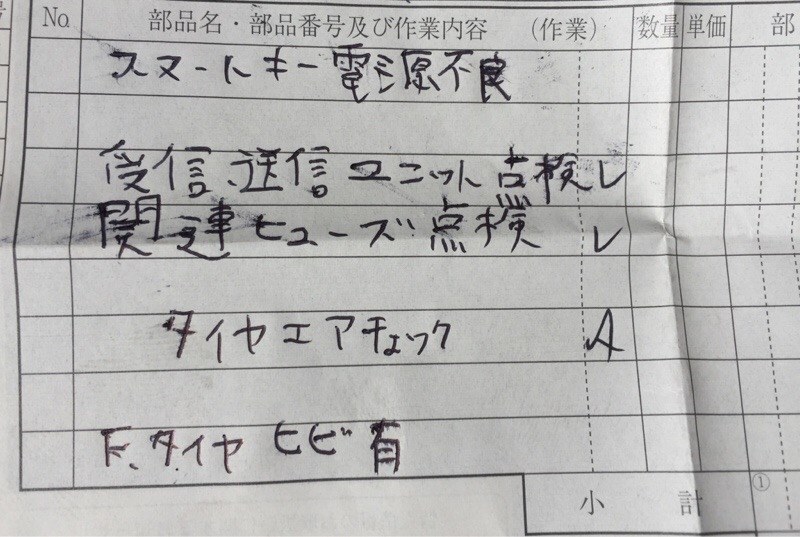 No. 部品名・部品番号及び作業内容 (作業) 数量 単価 部
スマートキー電源不良
受信、送信ユニット点検 レ
関連ヒューズ点検 レ
タイヤエアチェック A
F、タイヤ ヒビ有
小計 ①